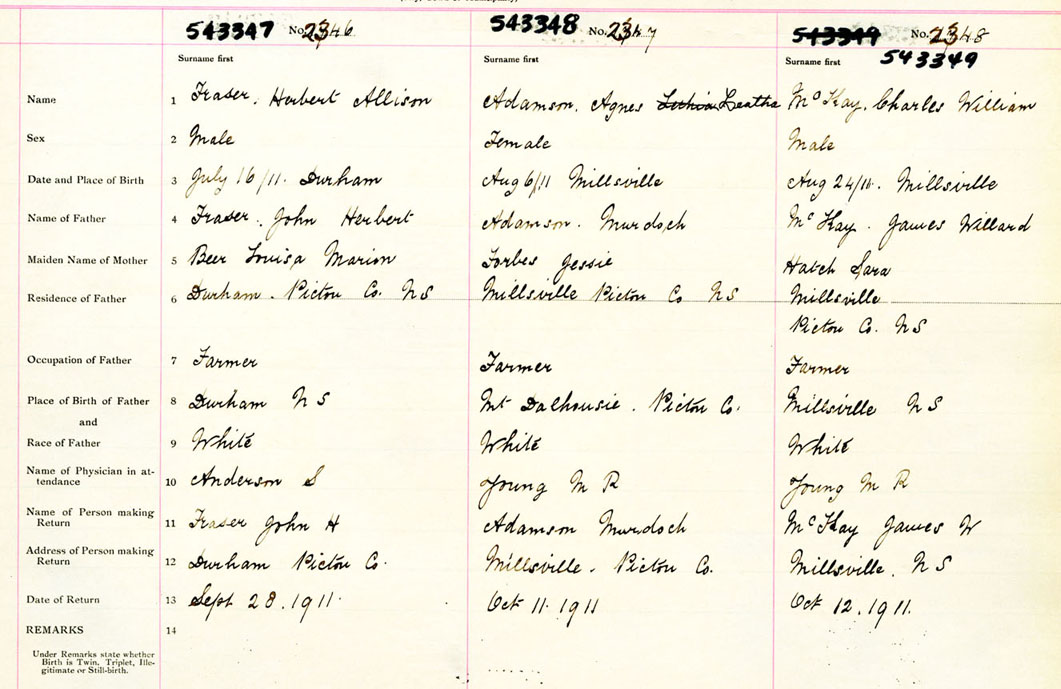 543347 No. 2346 543348 No. 2347 543349 No. 2348
Surname first Surname first Surname first 543349
Name 1 Fraser. Herbert Allison Adamson. Agnes Leatha McKay. Charles William
Sex 2 Male Female Male
Date and Place of Birth 3 July 16/11. Durham Aug 6/11 Millsville Aug 24/11. Millsville
Name of Father 4 Fraser. John Herbert Adamson. Murdoch McKay. James Willard
Maiden Name of Mother 5 Beer Louisa Marion Forbes Jessie Hatch Sara
Residence of Father 6 Durham. Pictou Co. NS Millsville Pictou Co NS Millsville
Pictou Co. NS
Occupation of Father 7 Farmer Farmer Farmer
Place of Birth of Father 8 Durham NS Mt Dalhousie. Pictou Co. Millsville NS
and
Race of Father 9 White White White
Name of Physician in at-
tendance 10 Anderson S Young M R Young M R
Name of Person making
Return 11 Fraser John H Adamson Murdoch McKay James W
Address of Person making
Return 12 Durham Pictou Co. Millsville. Pictou Co. Millsville. NS
Date of Return 13 Sept 28. 1911. Oct 11. 1911 Oct 12. 1911.
REMARKS 14
Under Remarks state whether
Birth is Twin. Triplet, Ille-
gitimate or Still-birth.